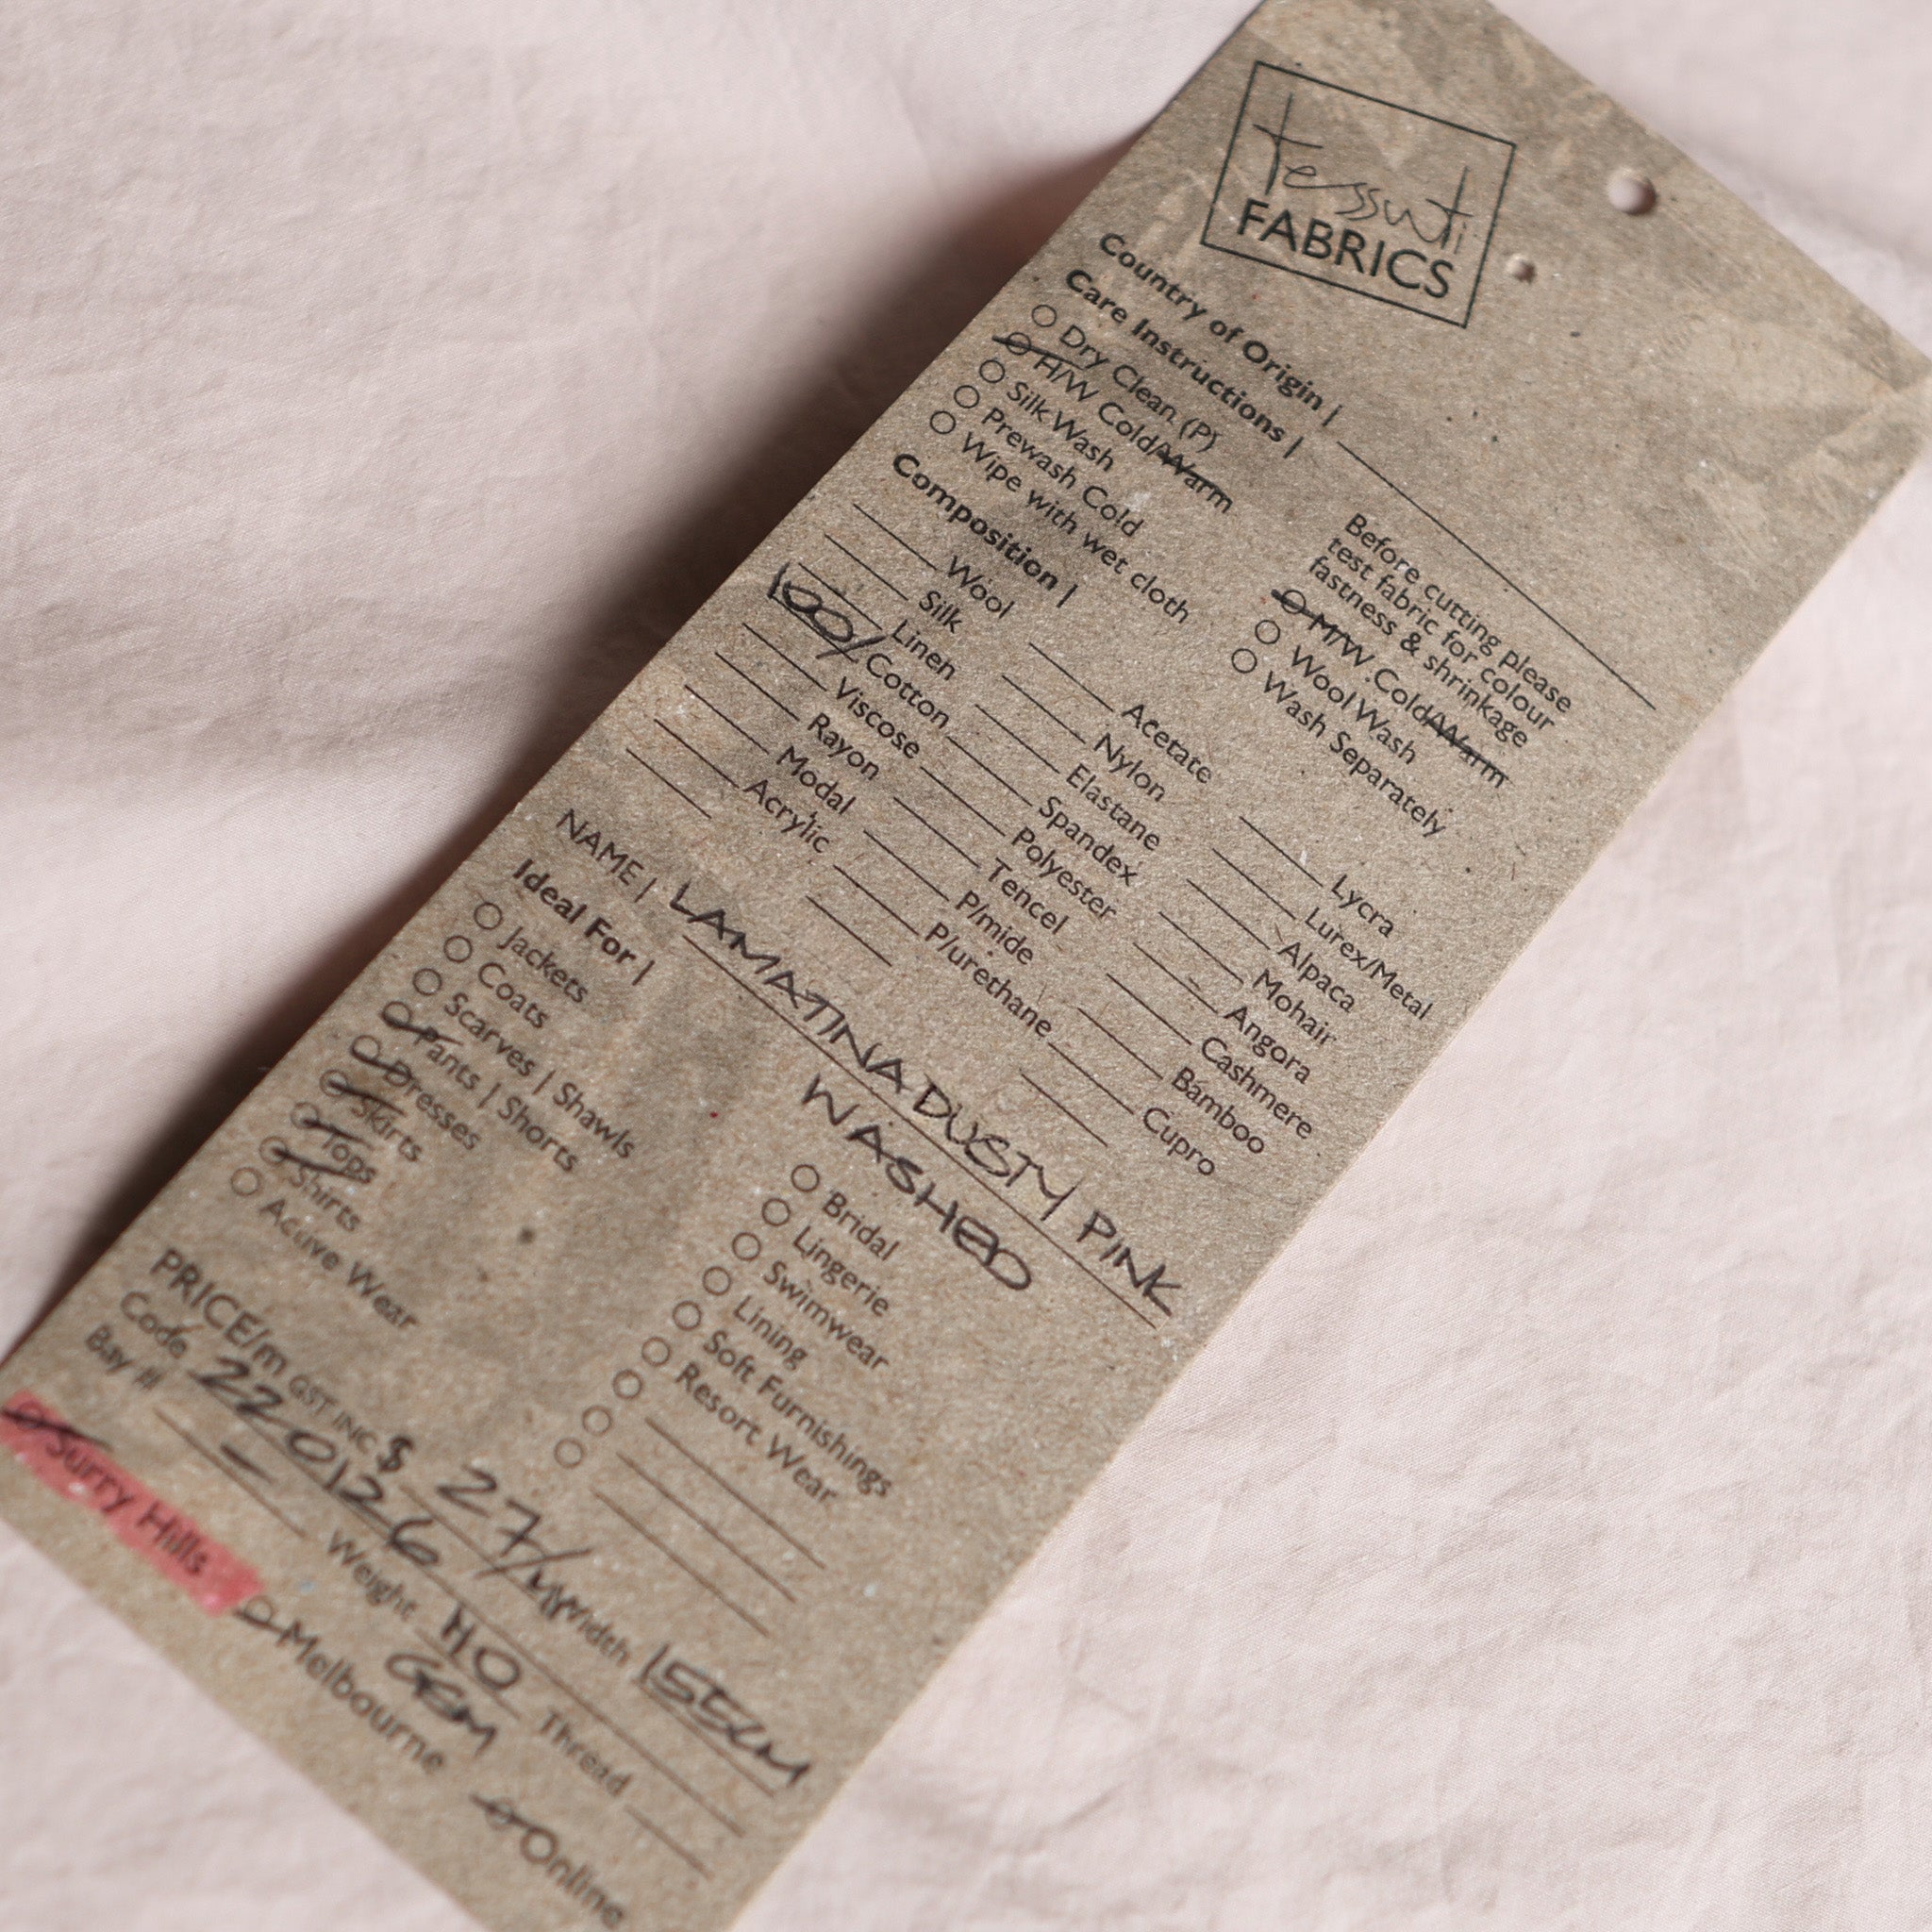 tessuti
FABRICS
Country of Origin |
Care Instructions |
Dry Clean (P)
H/W Cold/Warm
Silk Wash
Prewash Cold
Wipe with wet cloth
Before cutting please
test fabric for colour
fastness & shrinkage
M/W Cold/Warm
Wool Wash
Wash Separately
Composition |
Wool
Silk
Linen
100/ Cotton
Viscose
Rayon
Modal
Acrylic
Acetate
Nylon
Elastane
Spandex
Polyester
Tencel
P/mide
P/urethane
Lycra
Lurex/Metal
Alpaca
Mohair
Angora
Cashmere
Bamboo
Cupro
NAME | LAMATINA DUSTY PINK
WASHED
Ideal For |
Jackets
Coats
Scarves | Shawls
Pants | Shorts
Dresses
Skirts
Tops
Shirts
Active Wear
Bridal
Lingerie
Swimwear
Lining
Soft Furnishings
Resort Wear
PRICE/m GST INC $ 27/m Width 155cm
Code 220126 Weight 110 GSM Thread
Bay # –
Surry Hills Melbourne Online